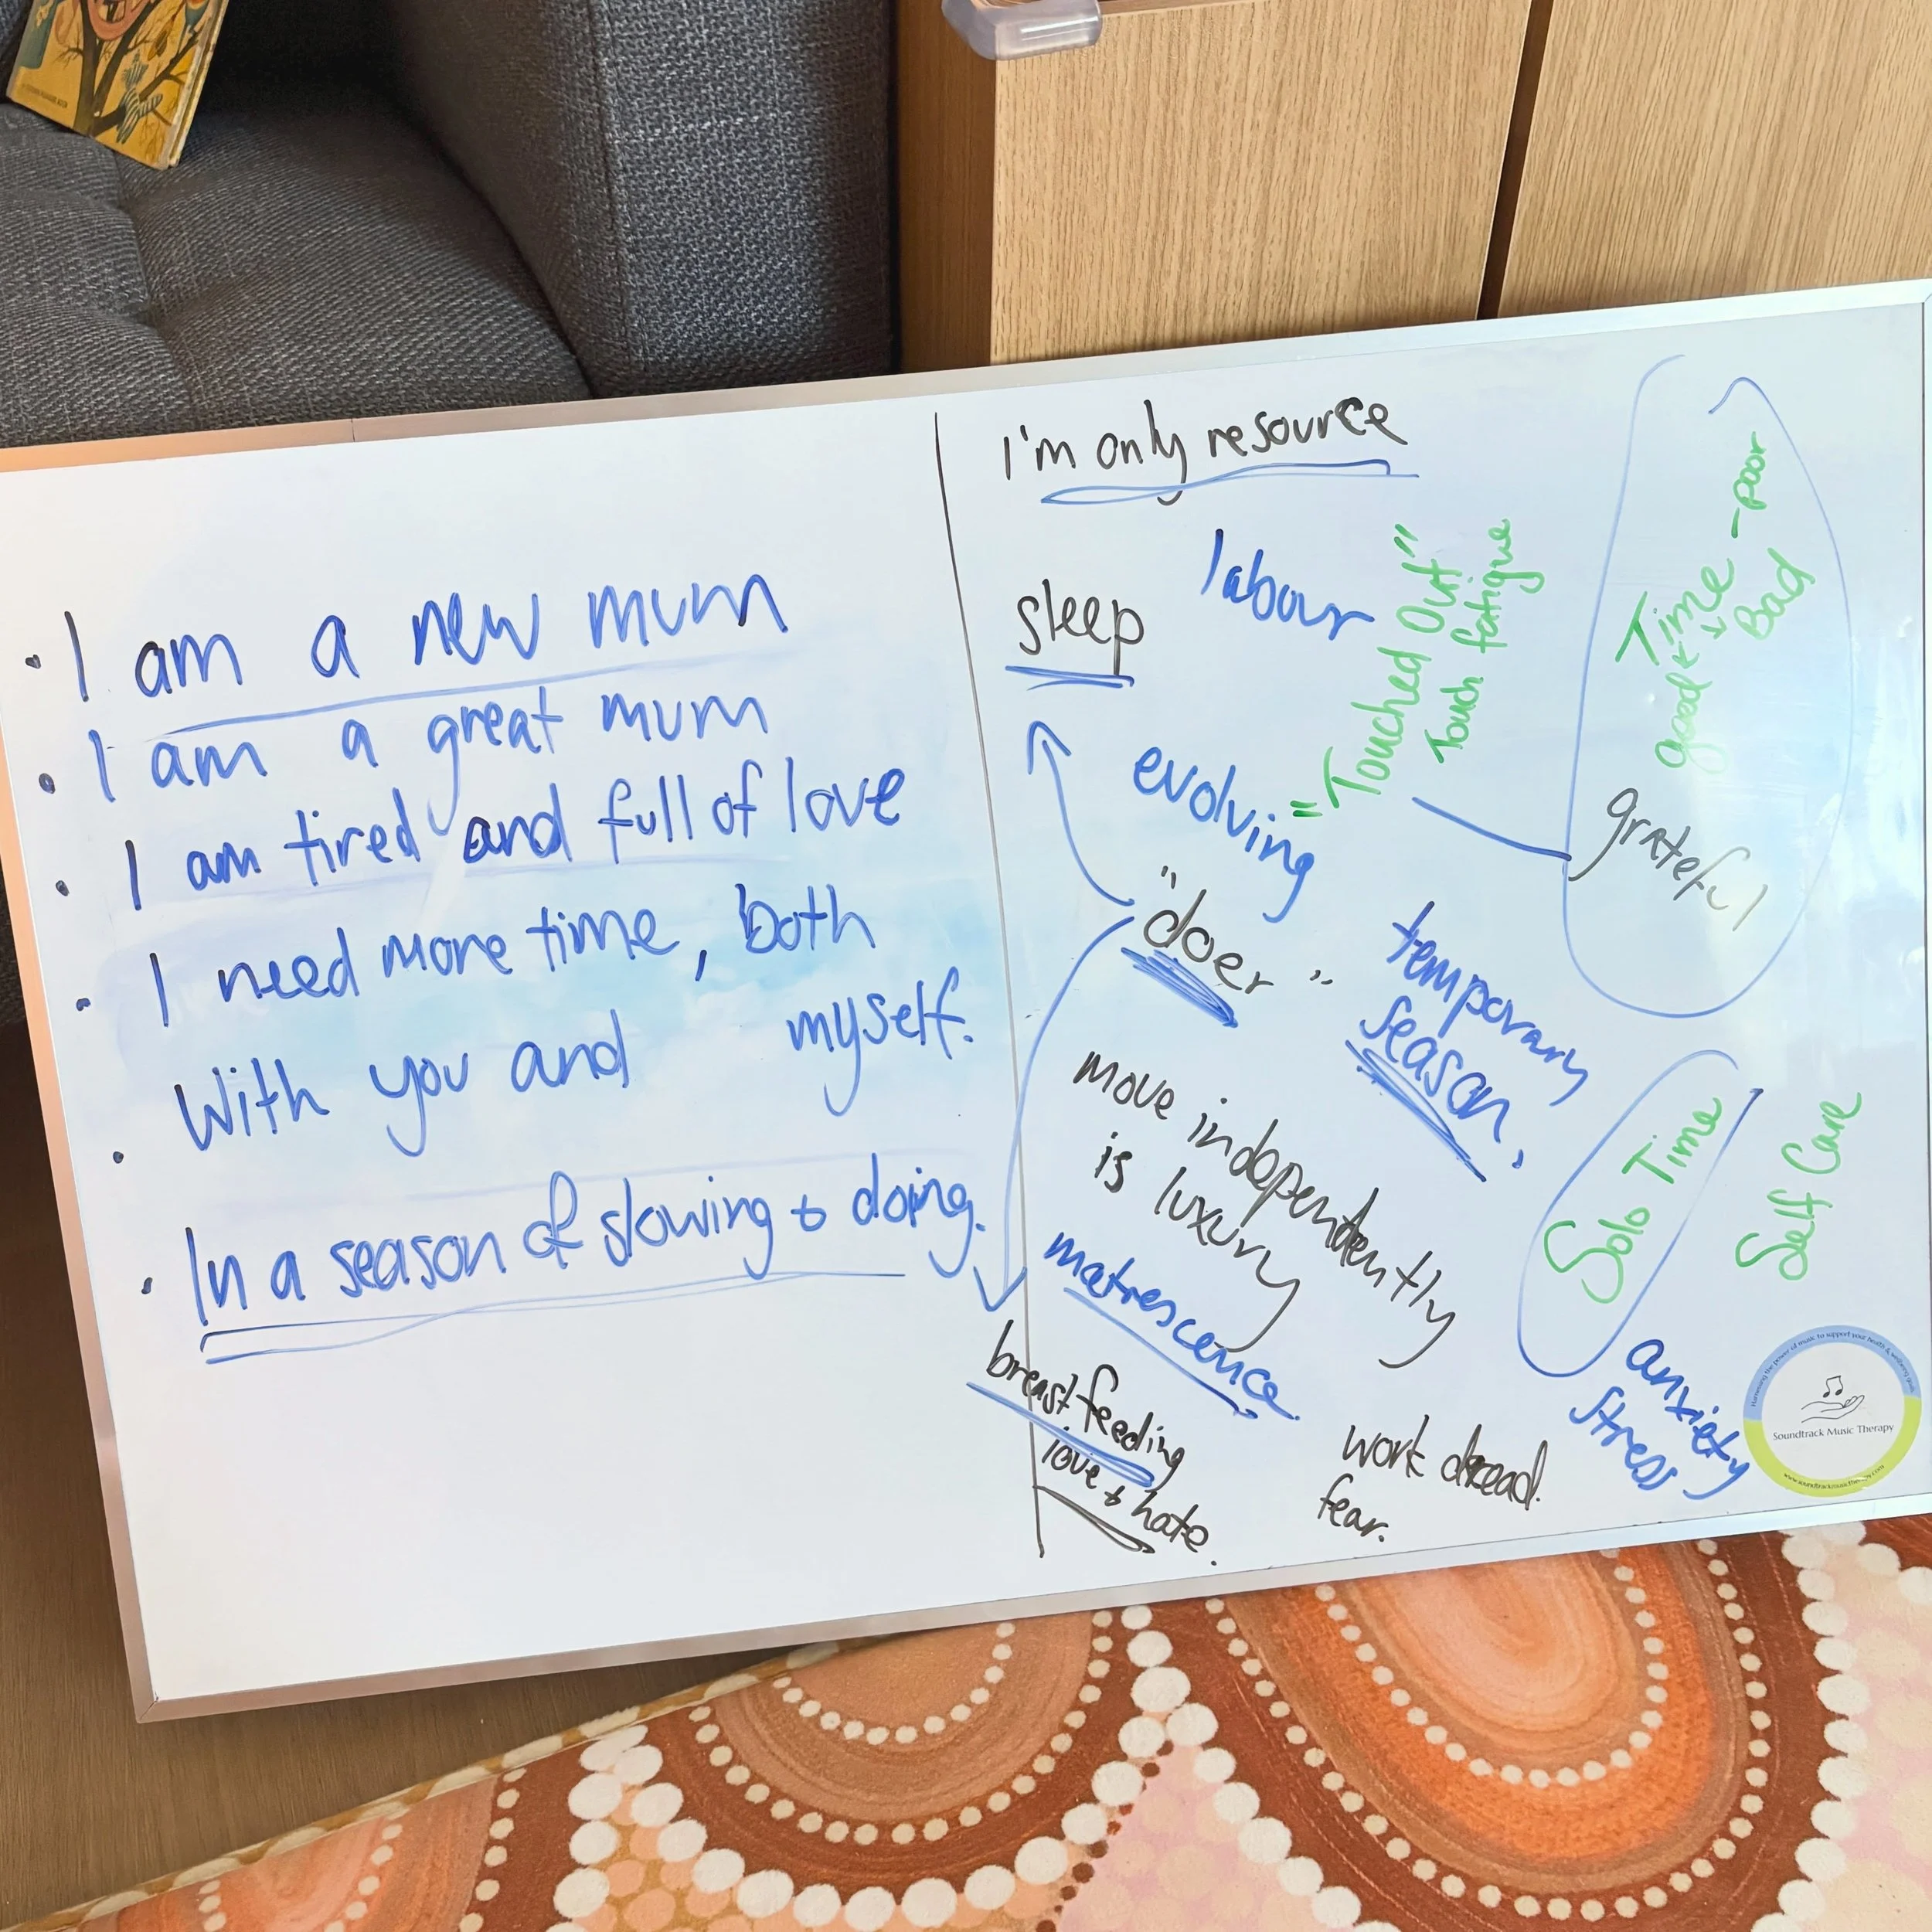 · I am a new mum
· I am a great mum
· I am tired and full of love
· I need more time, both
With you and myself.
· In a season of slowing & doing.
I'm only resource
sleep
labour
"Touched Out"
Touch fatigue
Time -poor
good + Bad
grateful
evolving
"doer"
temporary
season.
move independently
is luxury
Solo Time
Self Care
matrescence
breastfeeding
love & hate.
work dread.
fear.
anxiety
stress
Harnessing the power of music to support your health & wellbeing goals
Soundtrack Music Therapy
www.soundtrackmusictherapy.com